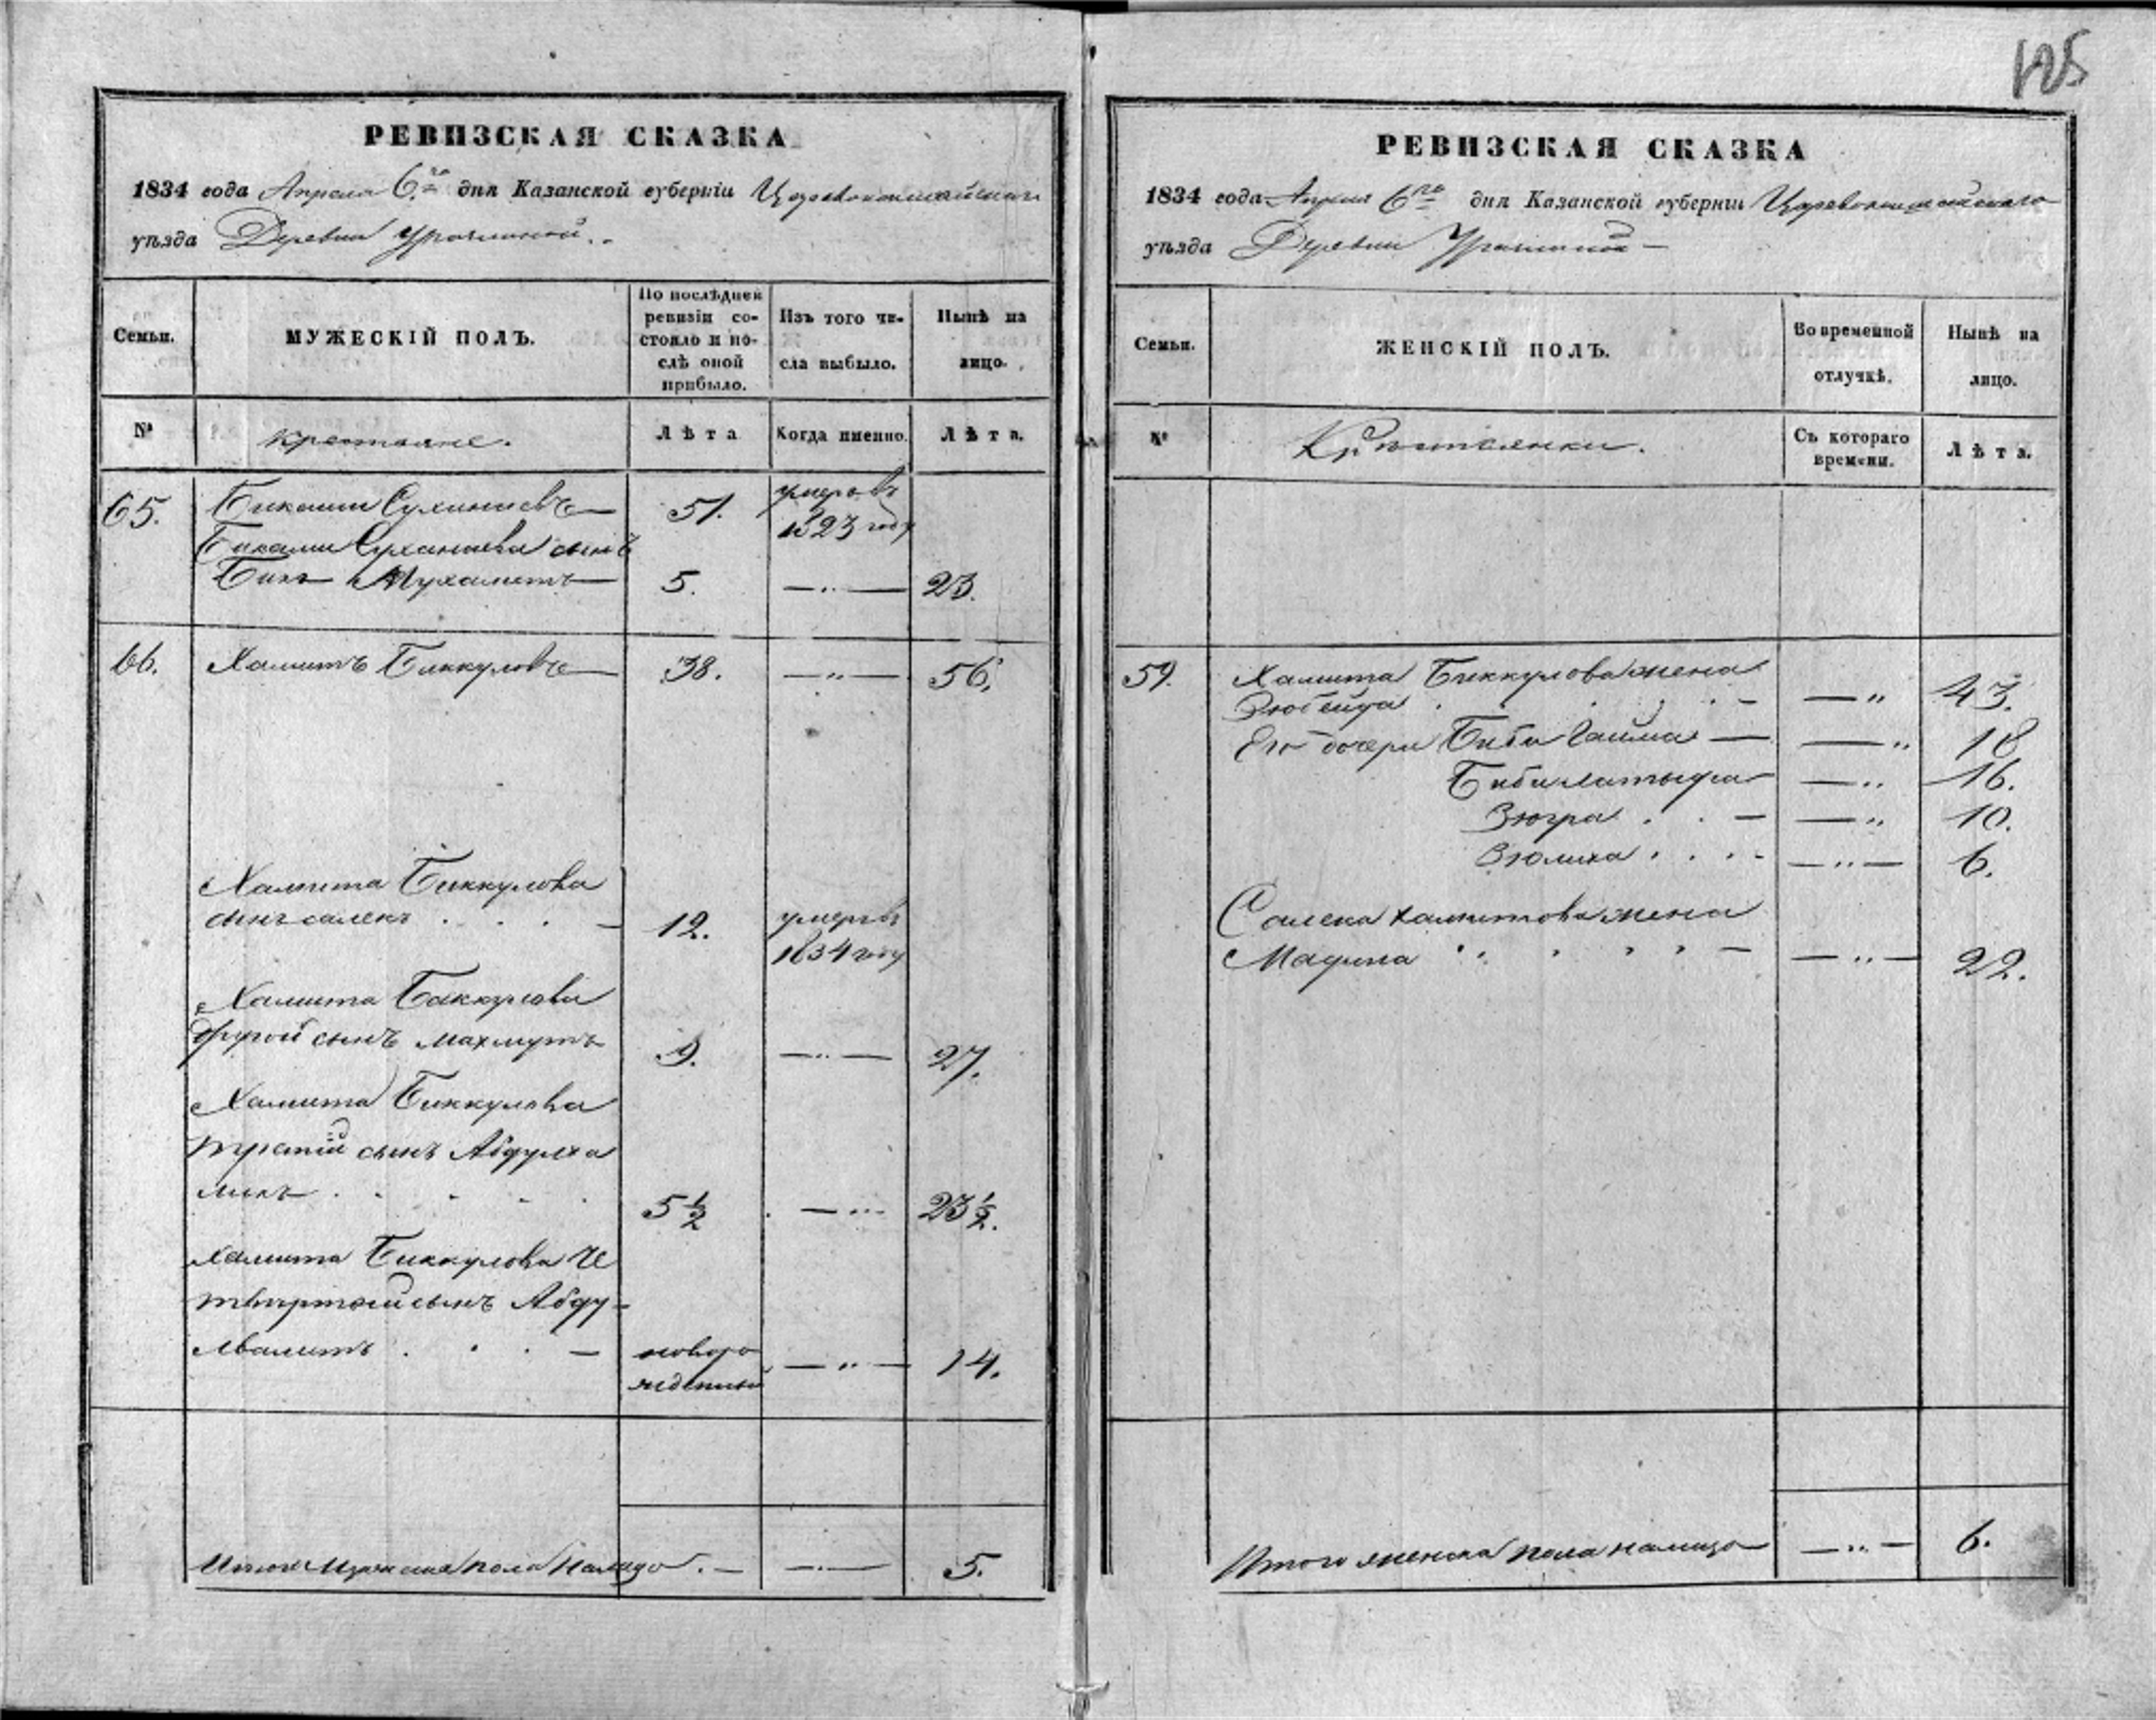 125
РЕВИЗСКАЯ СКАЗКА
1834 года Апреля 6го дня Казанской губерніи Царевококшайскаго
уѣзда Деревни
Семьи.
МУЖЕСКІЙ ПОЛЪ.
По послѣдней ревизіи состояло и послѣ оной прибыло.
Изъ того числа выбыло.
Нынѣ на лицо.
№
крестьяне.
Лѣта
Когда именно.
Лѣта.
65.
Бикаши 51. умеръ въ
1823 году
Бикаши сынъ
Бикъ Мухаметъ 5. —„— 23.
66. Хамитъ Биккуловъ 38. —„— 56.
Хамита Биккулова
сынъ салекъ . . . — 12. умеръ въ
1834 году
Хамита Биккулова
другой сынъ махмутъ 9. —„— 27.
Хамита Биккулова
третій сынъ Абдулха
ликъ . . . . 5 1/2 —„— 23 1/2.
Хамита Биккулова че
твертый сынъ Абду-
лвалитъ . . . — новоро
жденный —„— 14.
Итого мужеска пола налицо . — —„— 5.
РЕВИЗСКАЯ СКАЗКА
1834 года Апреля 6го дня Казанской губерніи Царевококшайскаго
уѣзда Деревни
Семьи.
ЖЕНСКІЙ ПОЛЪ.
Во временной отлучкѣ.
Нынѣ на лицо.
№
Крестьянки.
Съ котораго времени.
Лѣта.
59. Хамита Биккулова жена
Зюбейда . . . . — —„ 43.
Его дочери Биби Гайма — —„ 18
Биби латыфа —„ 16.
Зюгра . . — —„ 10.
Зюлиха . . . - —„— 6.
Салека хамитова жена
Мадина „ „ „ „ — —„— 22.
Итого женска пола налицо —„— 6.